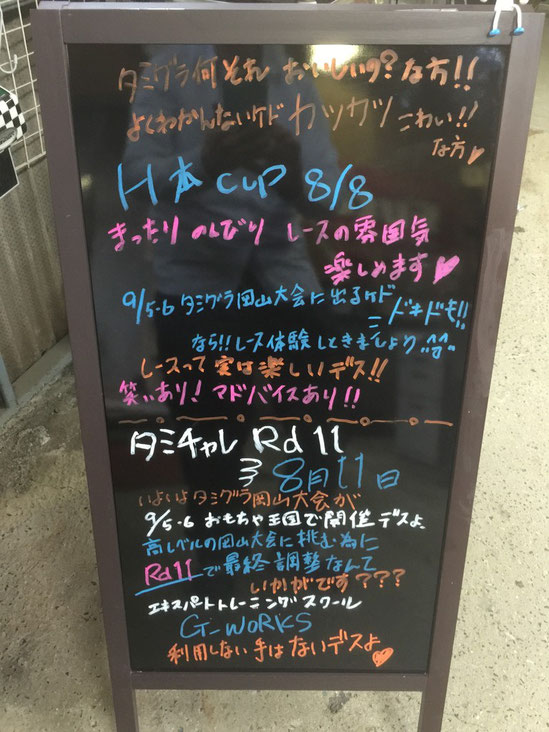 タミグラ何それ おいしいの?な方!!
よくわかんないケド ガツガツ こわい!!
な方♥
H本 CUP 8/8
まったり のんびり レースの雰囲気
楽しめます♥
9/5・6 タミグラ岡山大会に出るケド
ドキドキも!!
なら!!レース体験しときましょり ^^
レースって実は楽しいデス!!
笑いあり! マドバイスあり!!
タミチャレ Rd 11
8月11日
いよいよタミグラ岡山大会が
9/5・6 おもちゃ王国で開催デスよ、
高レベルの岡山大会に挑む為に
Rd11で最終調整なんて
いかがです???
エキスパートトレーニングスクール
G-WORKS
利用しない手はないデスよ♥